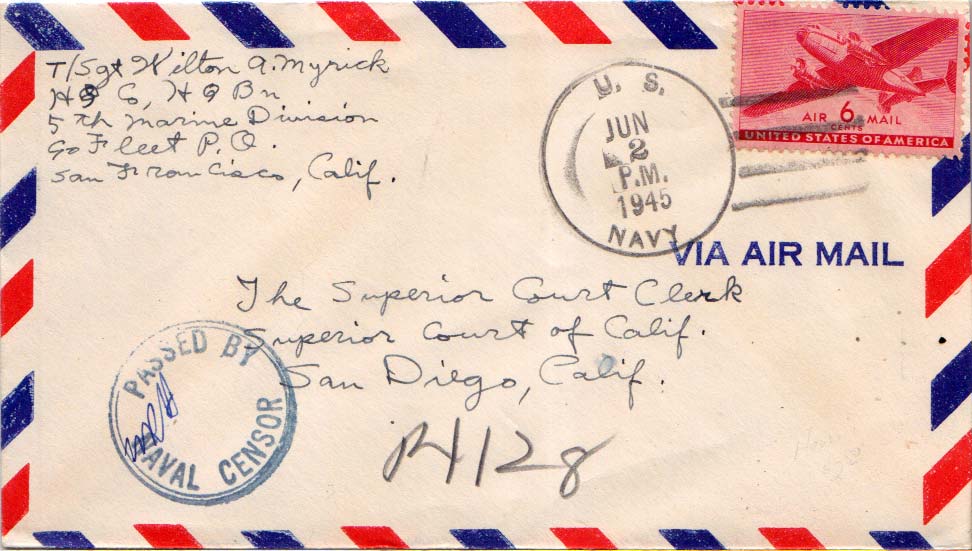 T/Sgt Wilton A. Myrick
HQ Co, HQ Bn
5th Marine Division
co Fleet P.O.
San Francisco, Calif.
U. S.
JUN
2
P.M.
1945
NAVY
AIR 6 MAIL
CENTS
UNITED STATES OF AMERICA
VIA AIR MAIL
The Superior Court Clerk
Superior Court of Calif.
San Diego, Calif.
PASSED BY
NAVAL CENSOR